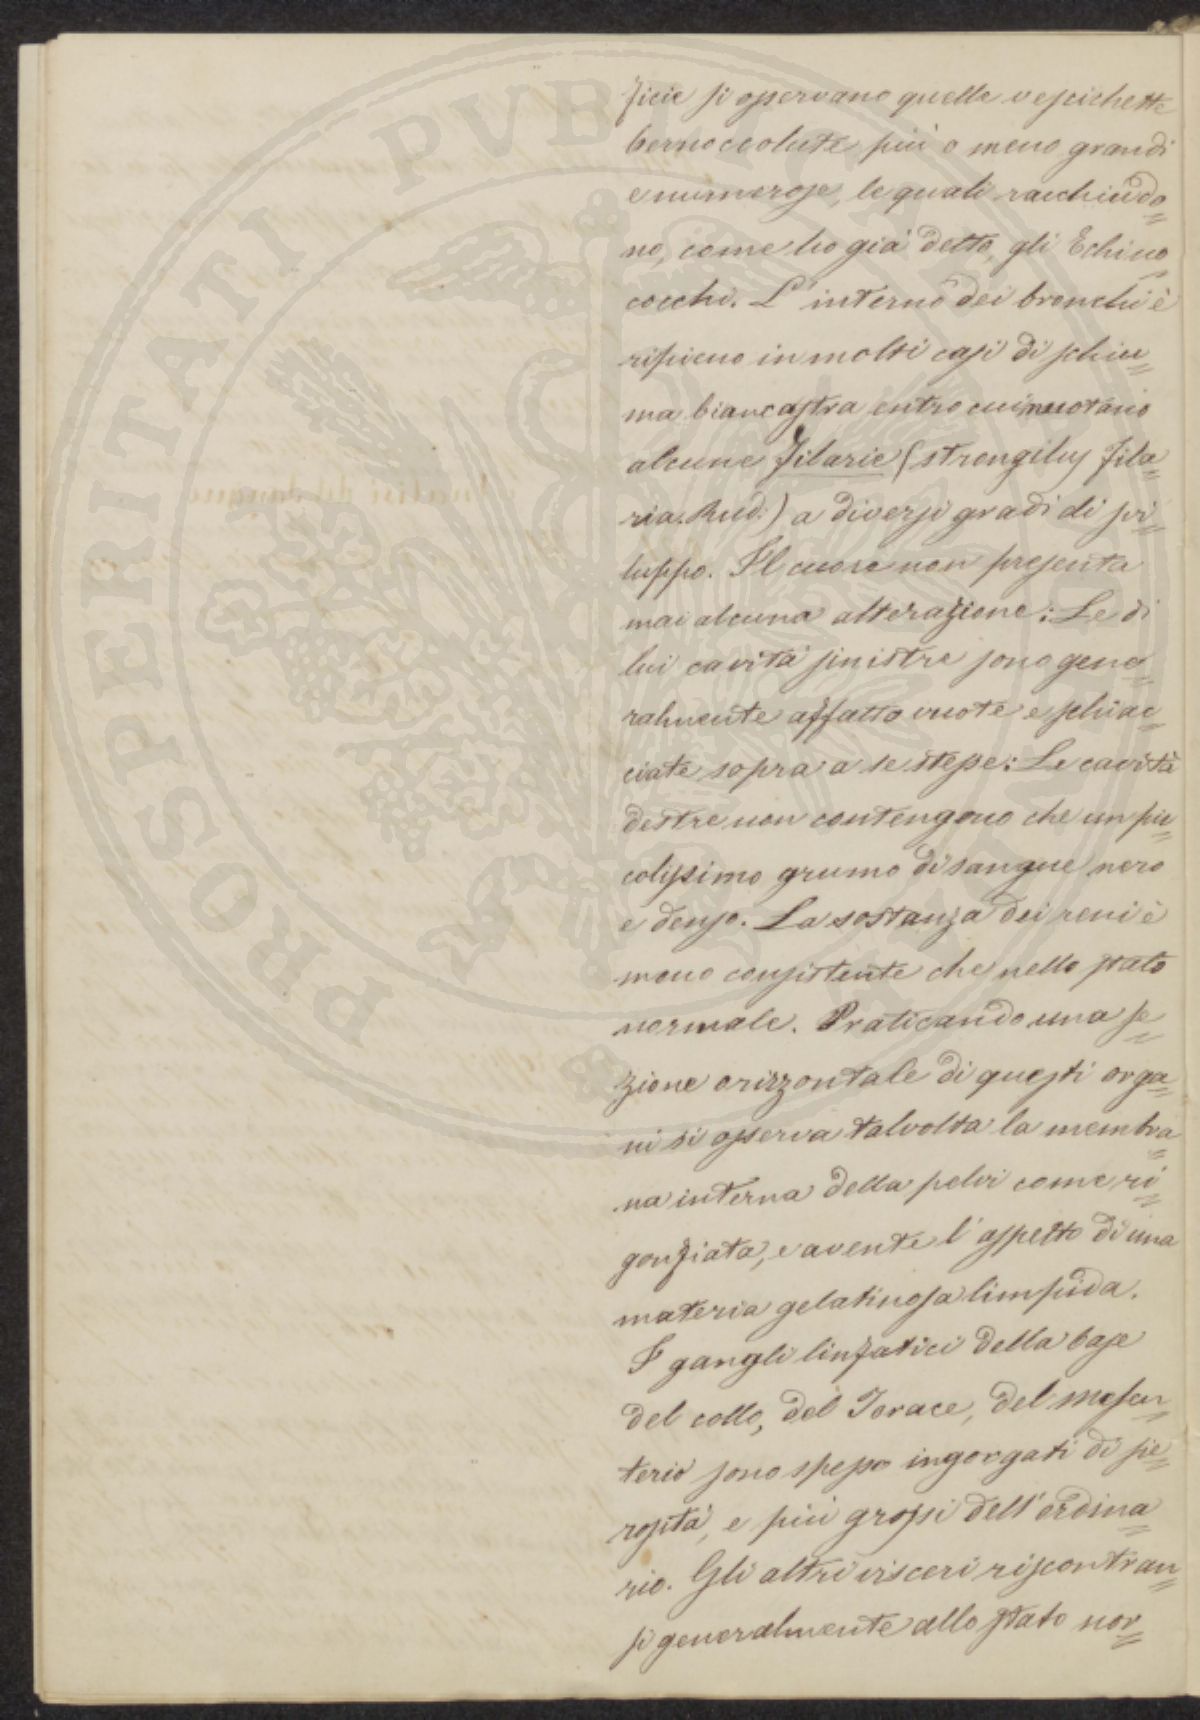 ficie si osservano quelle vescichette
bernoccolute più o meno grandi
e numerose, le quali racchiudo=
no, come ho già detto, gli Echino=
cocchi. L'interno dei bronchi è
ripieno in molti casi di schiu=
ma biancastra entro cui nuotano
alcune Filarie (strongilus fila=
ria. Rud:) a diversi gradi di svi=
luppo. Il cuore non presenta
mai alcuna alterazione: Le di
lui cavità sinistre sono gene=
ralmente affatto vuote e schiac=
ciate sopra a se stesse: Le cavità
destre non contengono che un pic=
colissimo grumo di sangue nero
e denso. La sostanza dei reni è
meno consistente che nello stato
normale. Praticando una se=
zione orizzontale di questi orga=
ni si osserva talvolta la membra=
na interna della pelvi come ri=
gonfiata, e avente l'aspetto di una
materia gelatinosa limpida.
I gangli linfatici della base
del collo, del Torace, del mesen=
terio sono spesso ingorgati di sie=
rosità, e più grossi dell'ordina=
rio. Gli altri visceri riscontran=
si generalmente allo stato nor=
PROSPERITATI PVBLICAE